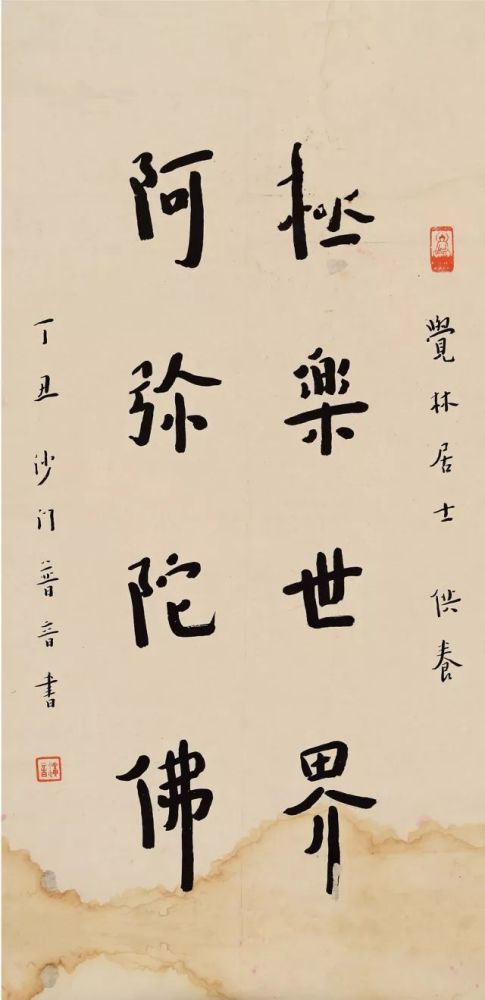 覺林居士 供養
極楽世界
阿弥陀佛
丁丑沙門普音書